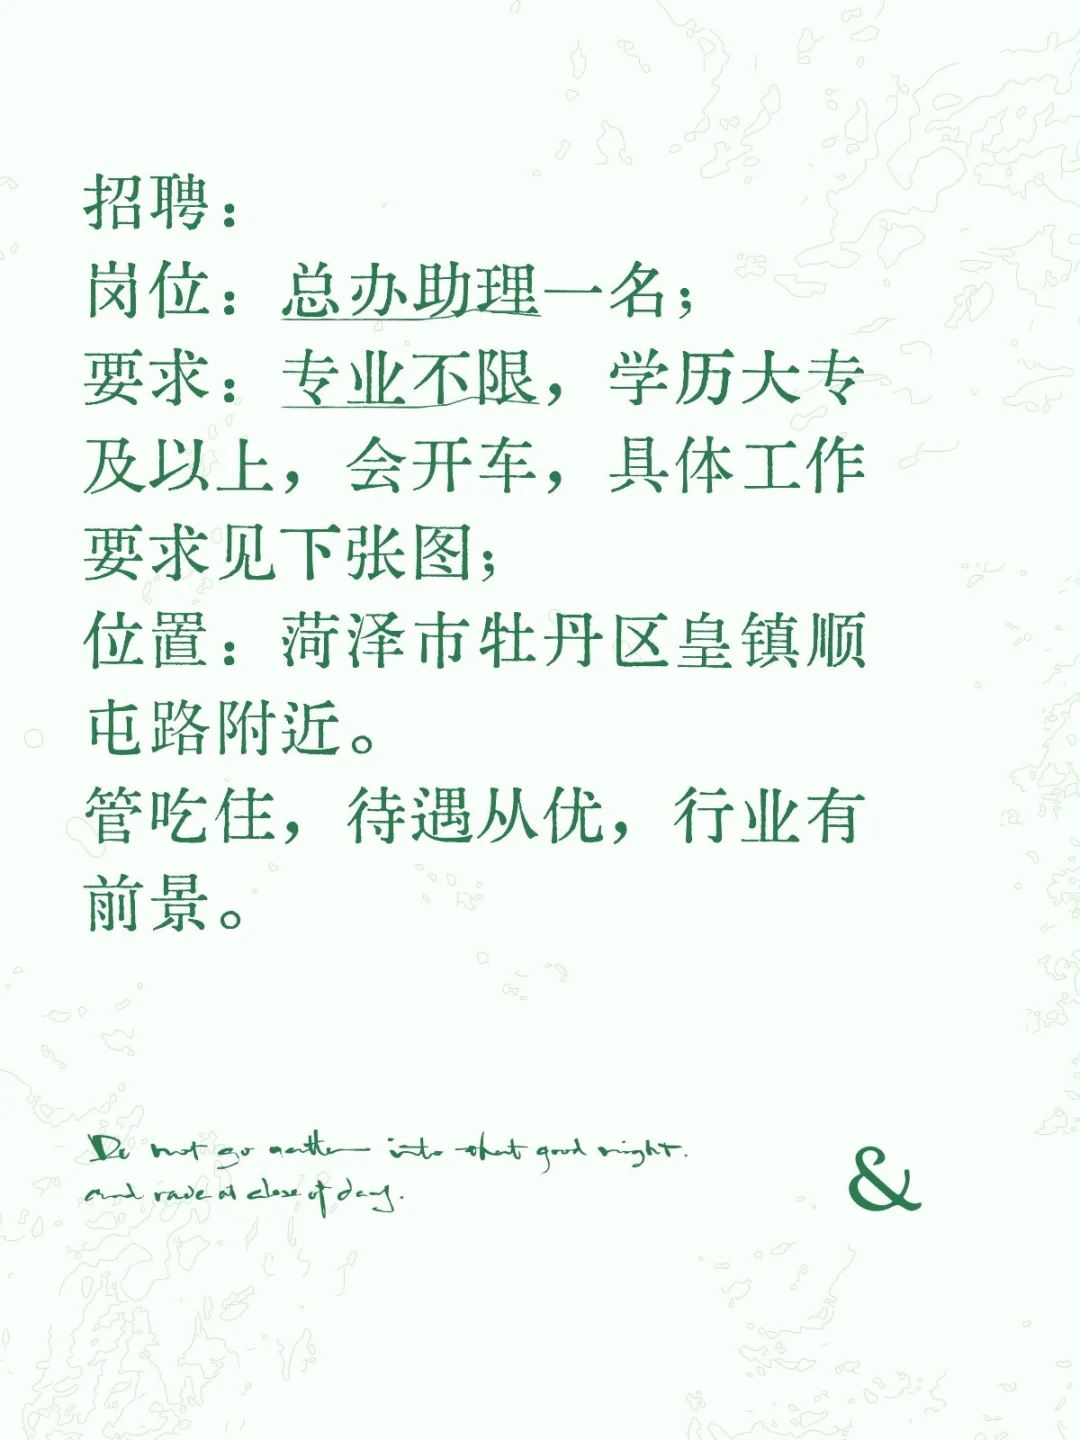 招聘：
岗位：总办助理一名；
要求：专业不限，学历大专
及以上，会开车，具体工作
要求见下张图；
位置：菏泽市牡丹区皇镇顺
屯路附近。
管吃住，待遇从优，行业有
前景。
Do not go gentle into that good night.
and rave at close of day.
&